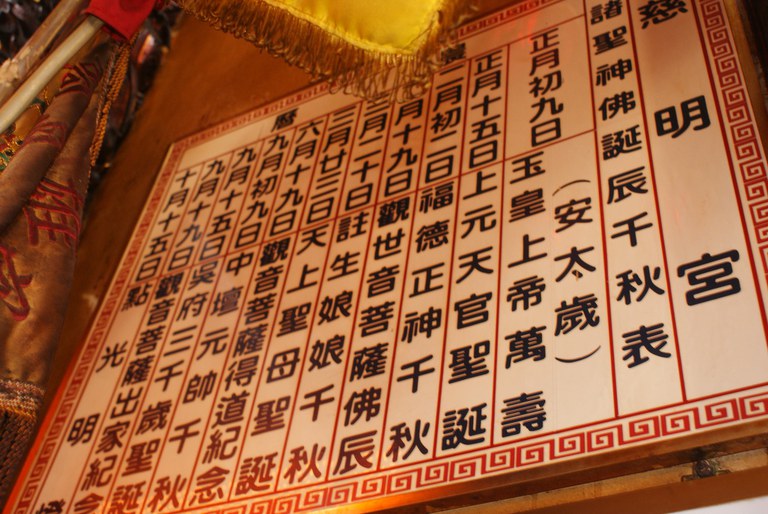 慈明宮
諸聖神佛誕辰千秋表
農曆
正月初九日 玉皇上帝萬壽（安太歲）
正月十五日 上元天官聖誕
二月初二日 福德正神千秋
月十九日 觀世音菩薩佛辰
三月二十日 註生娘娘千秋
三月廿三日 天上聖母聖誕
六月十九日 觀音菩薩得道紀念
九月初九日 中壇元帥千秋
九月十五日 吳府三千歲聖誕
九月十九日 觀音菩薩出家紀念
十月十五日 點光明燈